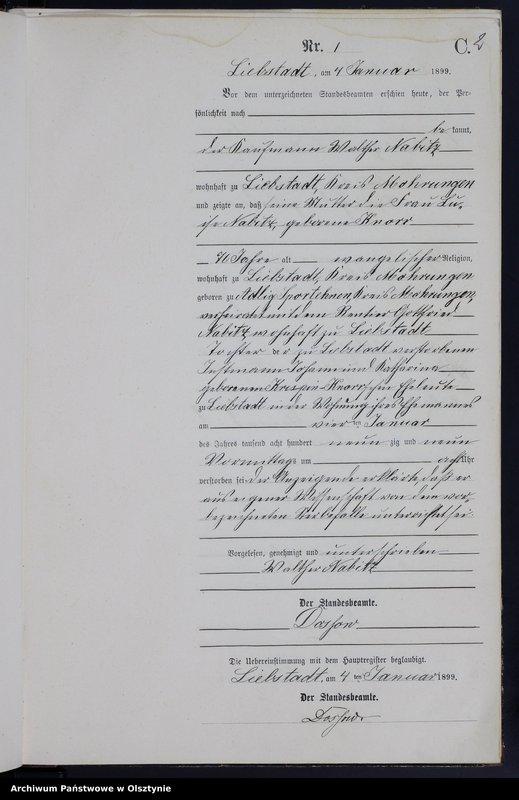 Nr. 1 C. 2
Liebstadt, am 4 Januar 1899.
Vor dem unterzeichneten Standesbeamten erschien heute, der Per-
sönlichkeit nach
be kannt,
der Kaufmann Walther Nabitz
wohnhaft zu Liebstadt, Kreis Mohrungen
und zeigte an, daß seine Mutter die Frau Lu-
ise Nabitz, geborene Knorr
70 Jahre alt evangelischer Religion,
wohnhaft zu Liebstadt, Kreis Mohrungen
geboren zu Adlig Sportehnen, Kreis Mohrungen,
verheirathet mit dem Rentier Gottfried
Nabitz, wohnhaft zu Liebstadt
Tochter der zu Liebstadt verstorbenen
Instmann Johann und Katharina
geborenen Krispin Knorr'schen Eheleute
zu Liebstadt in der Wohnung ihres Ehemannes
am vier ten Januar
des Jahres tausend acht hundert neun zig und neun
Vormittags um acht Uhr
verstorben sei. Der Anzeigende erklärte, daß er
aus eigener Wissenschaft von dem vor-
bezeichneten Sterbefalle unterrichtet sei.
Vorgelesen, genehmigt und unterschrieben
Walther Nabitz
Der Standesbeamte.
Die Uebereinstimmung mit dem Hauptregister beglaubigt.
Liebstadt, am 4 ten Januar 1899.
Der Standesbeamte.
Archiwum Państwowe w Olsztynie